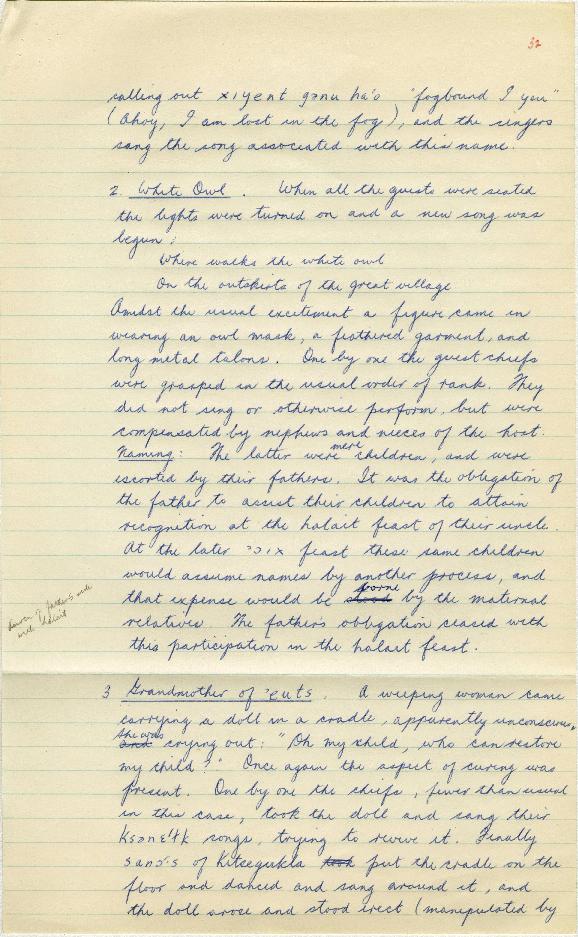 32
calling out xiyent gǝnu ha'o "fogbound I you"
(Ahoy, I am lost in the fog), and the singers
sang the song associated with this name.
2. White Owl. When all the guests were seated
the lights were turned on and a new song was
begun:
Where walks the white owl
On the outskirts of the great village
Amidst the usual excitement a figure came in
wearing an owl mask, a feathered garment, and
long metal talons. One by one the guest chiefs
were grasped in the usual order of rank. They
did not sing or otherwise perform, but were
compensated by nephews and nieces of the host.
Naming: The latter were mere children, and were
escorted by their fathers. It was the obligation of
the father to assist their children to attain
recognition at the halait feast of their uncle.
At the later feast these same children
would assume names by another process, and
that expense would be stood borne by the maternal
relatives. The father's obligation ceased with
this participation in the halait feast.
father's side
3 Grandmother of 'euts. A weeping woman came
carrying a doll in a cradle, apparently unconscious,
and she was crying out: "Oh my child, who can restore
my child?" Once again the aspect of curing was
present. One by one the chiefs, fewer than usual
in this case, took the doll and sang their
songs, trying to revive it. Finally
of Kitsegukla took put the cradle on the
floor and danced and sang around it, and
the doll arose and stood erect (manipulated by